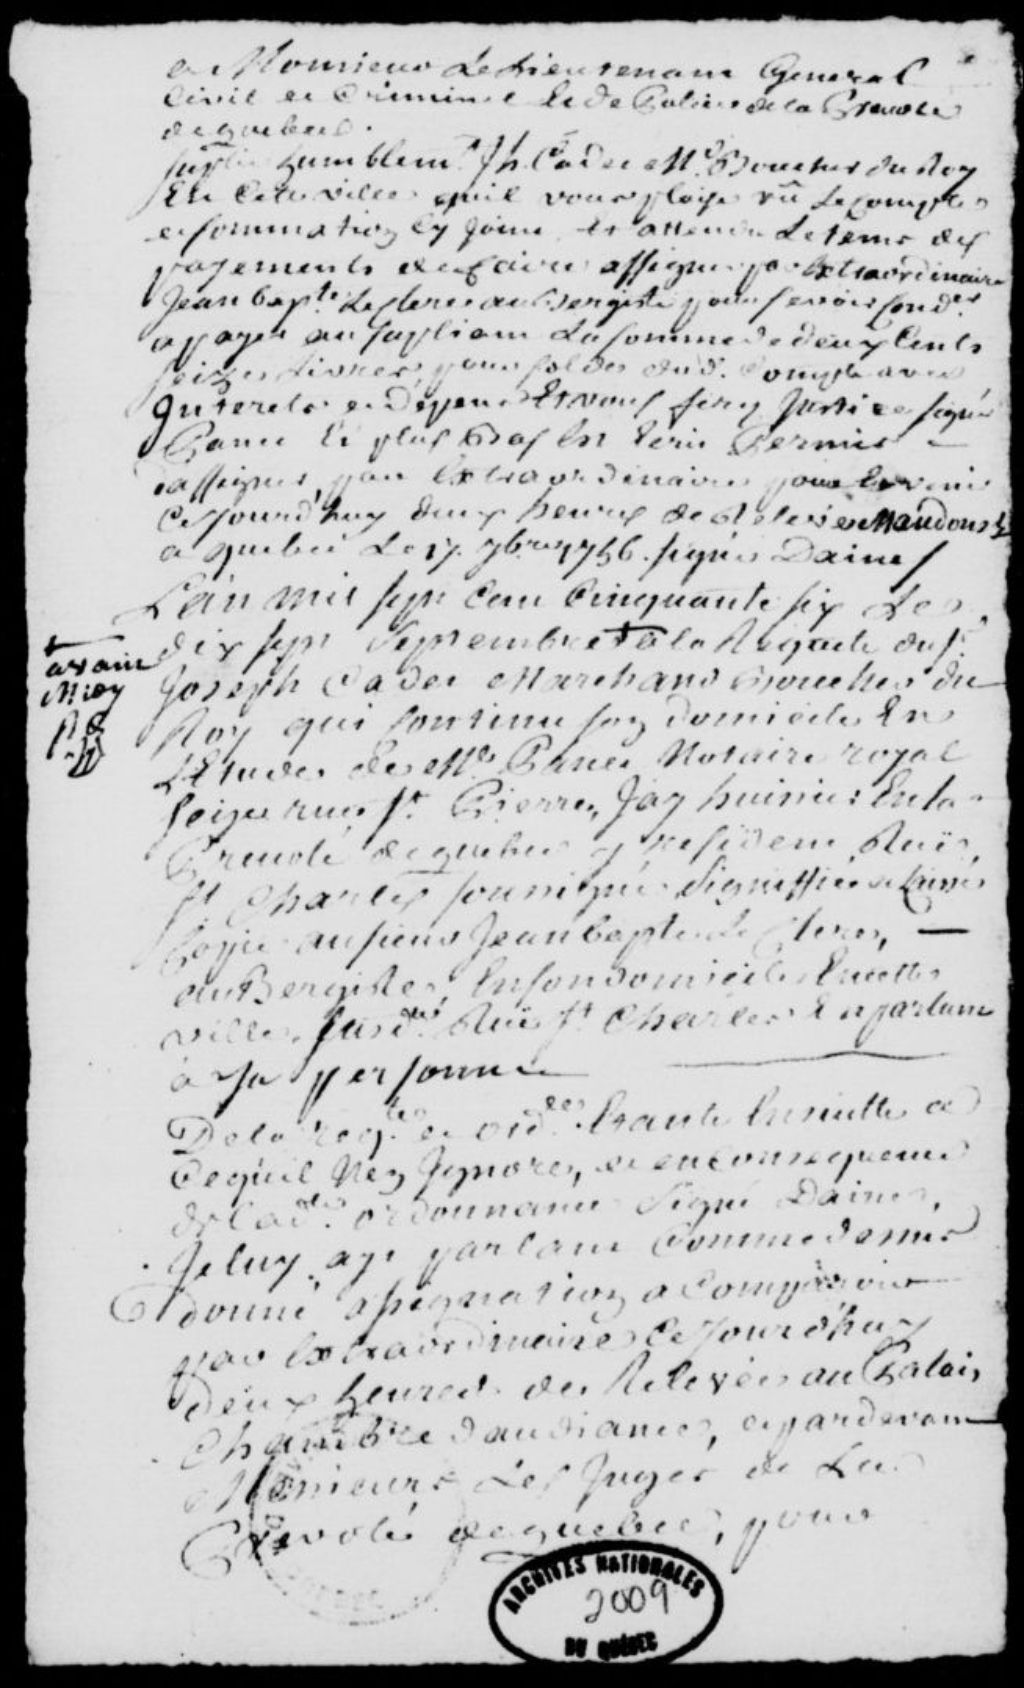 a Monsieur Le Lieutenant General
Civil et Criminel et de Police de la Prevoté
de quebec.
suplie humblemt. Jh. Cadet Md. Boucher du Roy
En Cette ville quil vous plaise vû Le Compte
et sommation Cy Joint et attendu Le tems des
payements de faire assigner par Extraordinaire
Jean bapte. Le Clerc aubergiste pour se voir Cond.er
a payer au supliant La somme de deux Cents
seize Livres pour solde dud. Compte avec
Interets et Depens Et vous ferez Justice signé
Panet Et plus Bas Est Ecrit Permis
d'assigner par Extraordinaire pour Le venir
Cejourd'huy deux heures de Relevée Mandons &
a quebec Le 17. 7bre 1756. signé Daine /
L'an mil sept cent Cinquante six Le
dix sept Septembre a la Requete du Sr.
avant
Midy
Joseph Cadet Marchand Boucher du
Roy qui Continue son domicile En
L'Etude de Me. Panet Notaire royal
seize rue St. Pierre, Jay huissier En la
Prevoté de quebec y resident Ruë
St. Charles soussigné Signiffié et Laissé
Copie au sieur Jean bapte Le Clerc, —
aubergiste, En son domicile En cette
ville susd. Ruë St Charles En parlant
à sa personne
De la req.te et ord.ce Etante Ensuitte a
Ce qu'il N'en Ignore, et en Consequence
de lad. ordonnance Signé Daine,
Je luy ay parlant Comme dessus
donné assignation a Comparoir
par Extraordinaire Cejourd'huy
deux heures de Relevée au Palais
Chambre d'audiance, et pardevant
Messieurs Les Juges de La
Prevoté de quebec, pour
ARCHIVES NATIONALES
2009
DU QUÉBEC